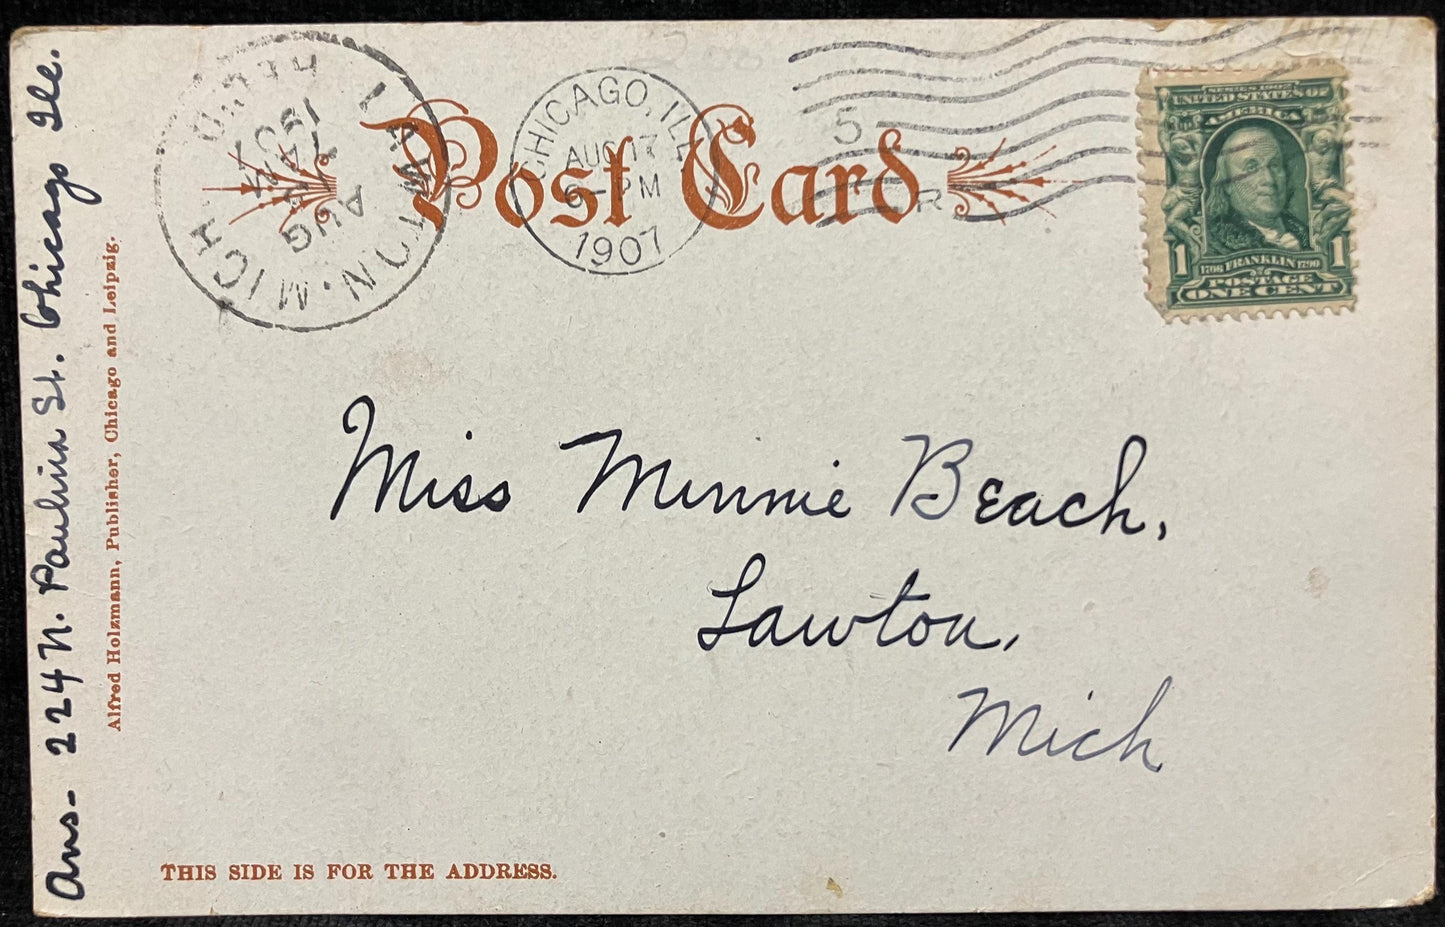 Post Card
CHICAGO, ILL.
AUG 17
6-PM
1907
5
LAWTON. MICH.
REC'D
AUG
7AM
1907
SERIES 1902
UNITED STATES OF
AMERICA
1 1
1706 FRANKLIN 1790
POSTAGE
ONE CENT
Miss Minnie Beach,
Lawton,
Mich
Ans- 224 N. Paulina St. Chicago Ill.
Alfred Holzmann, Publisher, Chicago and Leipzig.
THIS SIDE IS FOR THE ADDRESS.